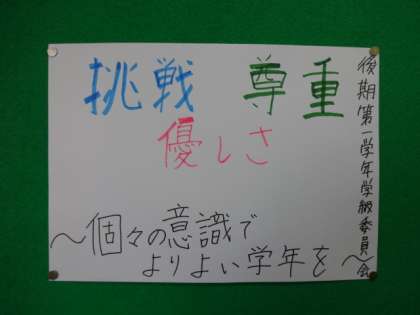 挑戦 尊重
優しさ
～個々の意識で
よりよい学年を～
後期第一学年学級委員会